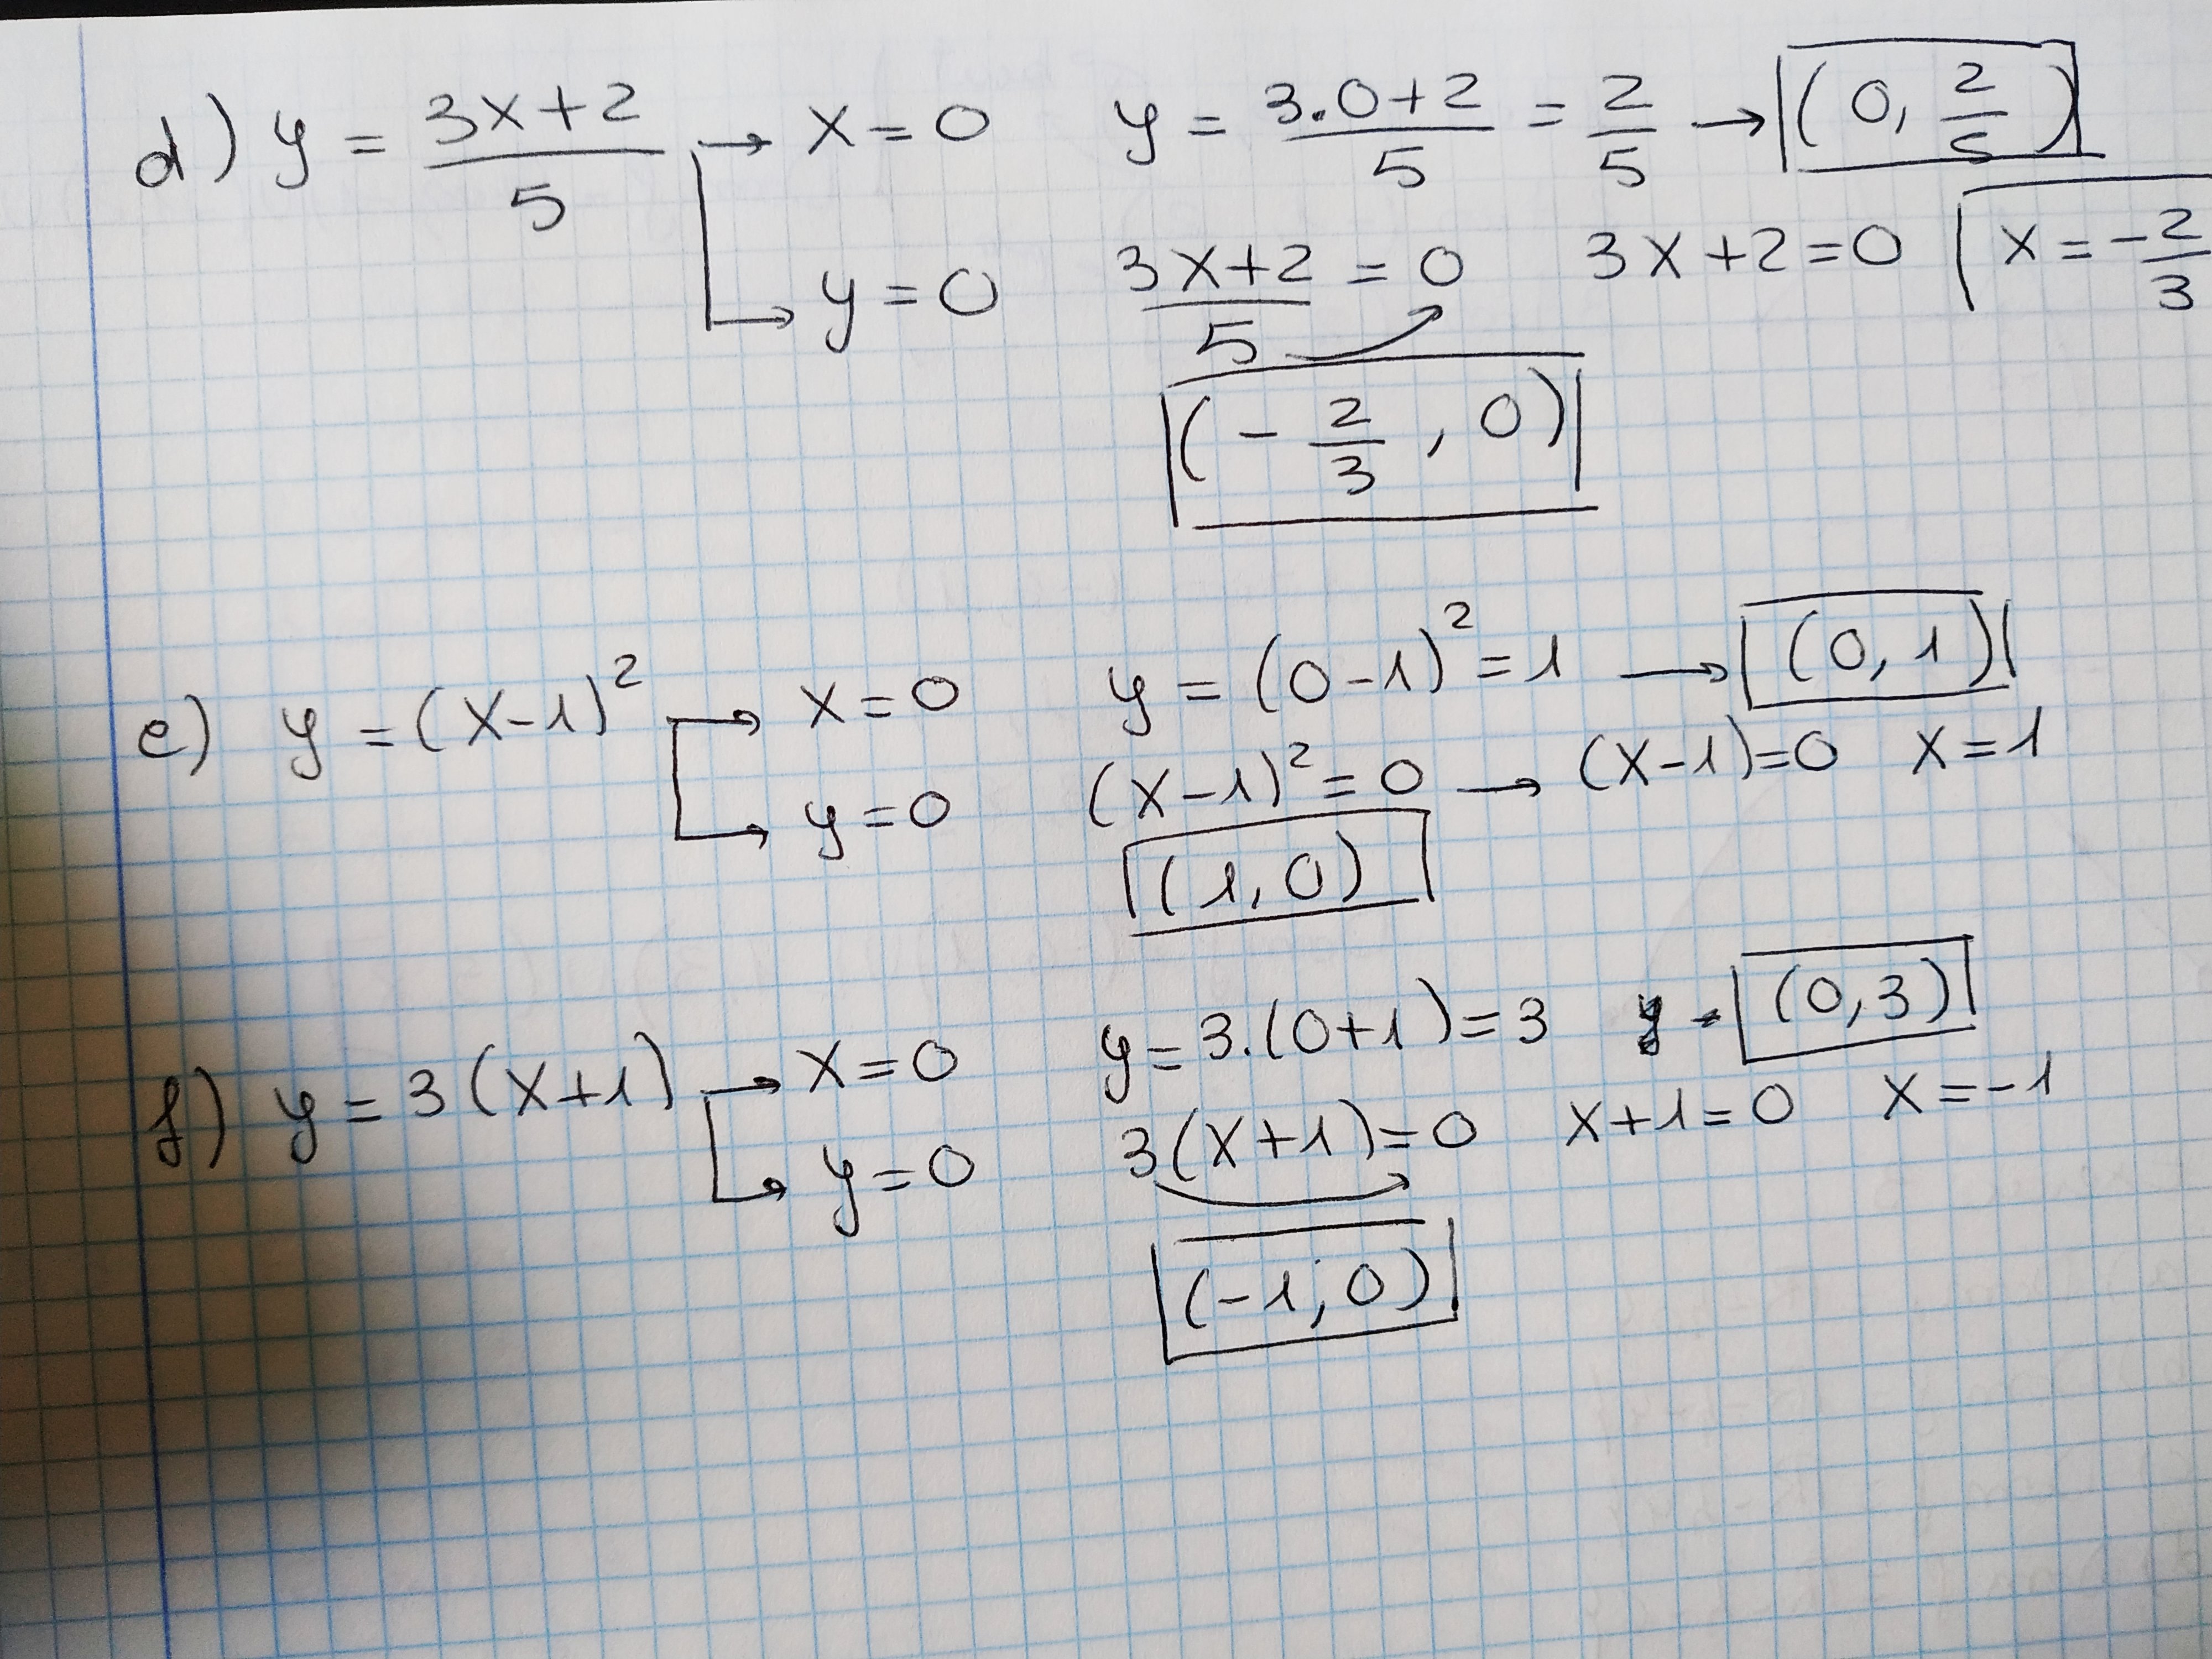 d) y = (3x+2)/5 → x = 0   y = (3.0+2)/5 = 2/5 → (0, 2/5)
→ y = 0   (3x+2)/5 = 0   3x+2=0   x = -2/3
(- 2/3 , 0)
e) y = (x-1)² → x = 0   y = (0-1)² = 1 → (0, 1)
→ y = 0   (x-1)² = 0 → (x-1)=0   x=1
(1, 0)
f) y = 3(x+1) → x = 0   y = 3.(0+1) = 3   y - (0,3)
→ y = 0   3(x+1)=0   x+1=0   x=-1
(-1, 0)